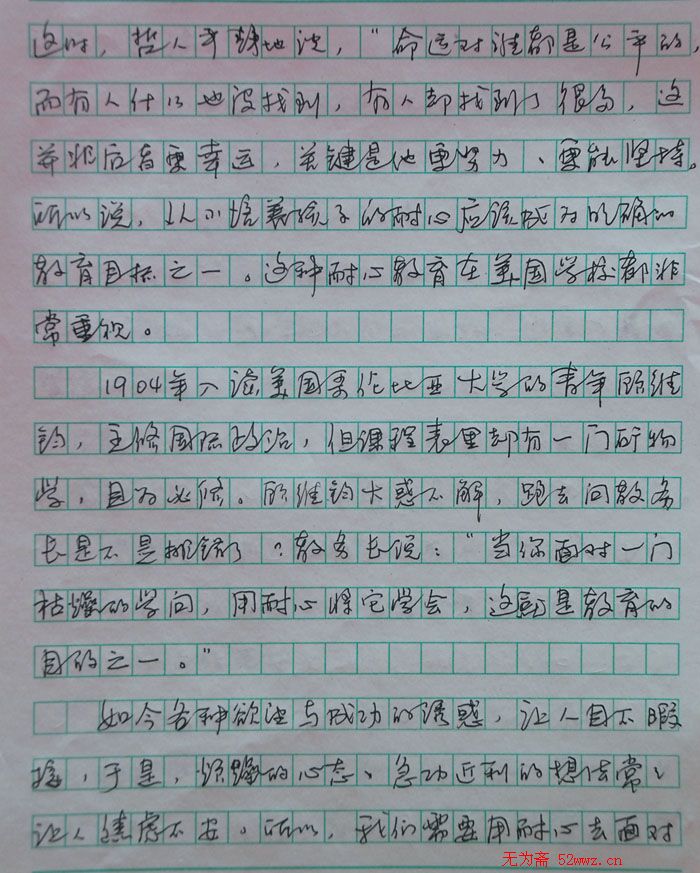 这时，哲人平静地说，“命运对谁都是公平的，
而有人什么也没找到，有人却找到了很多，这
并非后者更幸运，关键是他更努力、更能坚持。
所以说，从小培养孩子的耐心应该成为明确的
教育目标之一。这种耐心教育在美国学校都非
常重视。
1904年入读美国哥伦比亚大学的青年顾维
钧，主修国际政治，但课程表里却有一门矿物
学，且为必修。顾维钧大惑不解，跑去问教务
长是不是排错了？教务长说：“当你面对一门
枯燥的学问，用耐心将它学会，这就是教育的
目的之一。”
如今各种欲望与成功的诱惑，让人目不暇
接，于是，烦躁的心态、急功近利的想法常常
让人焦虑不安。所以，我们需要用耐心去面对
无为斋 52wwz.cn